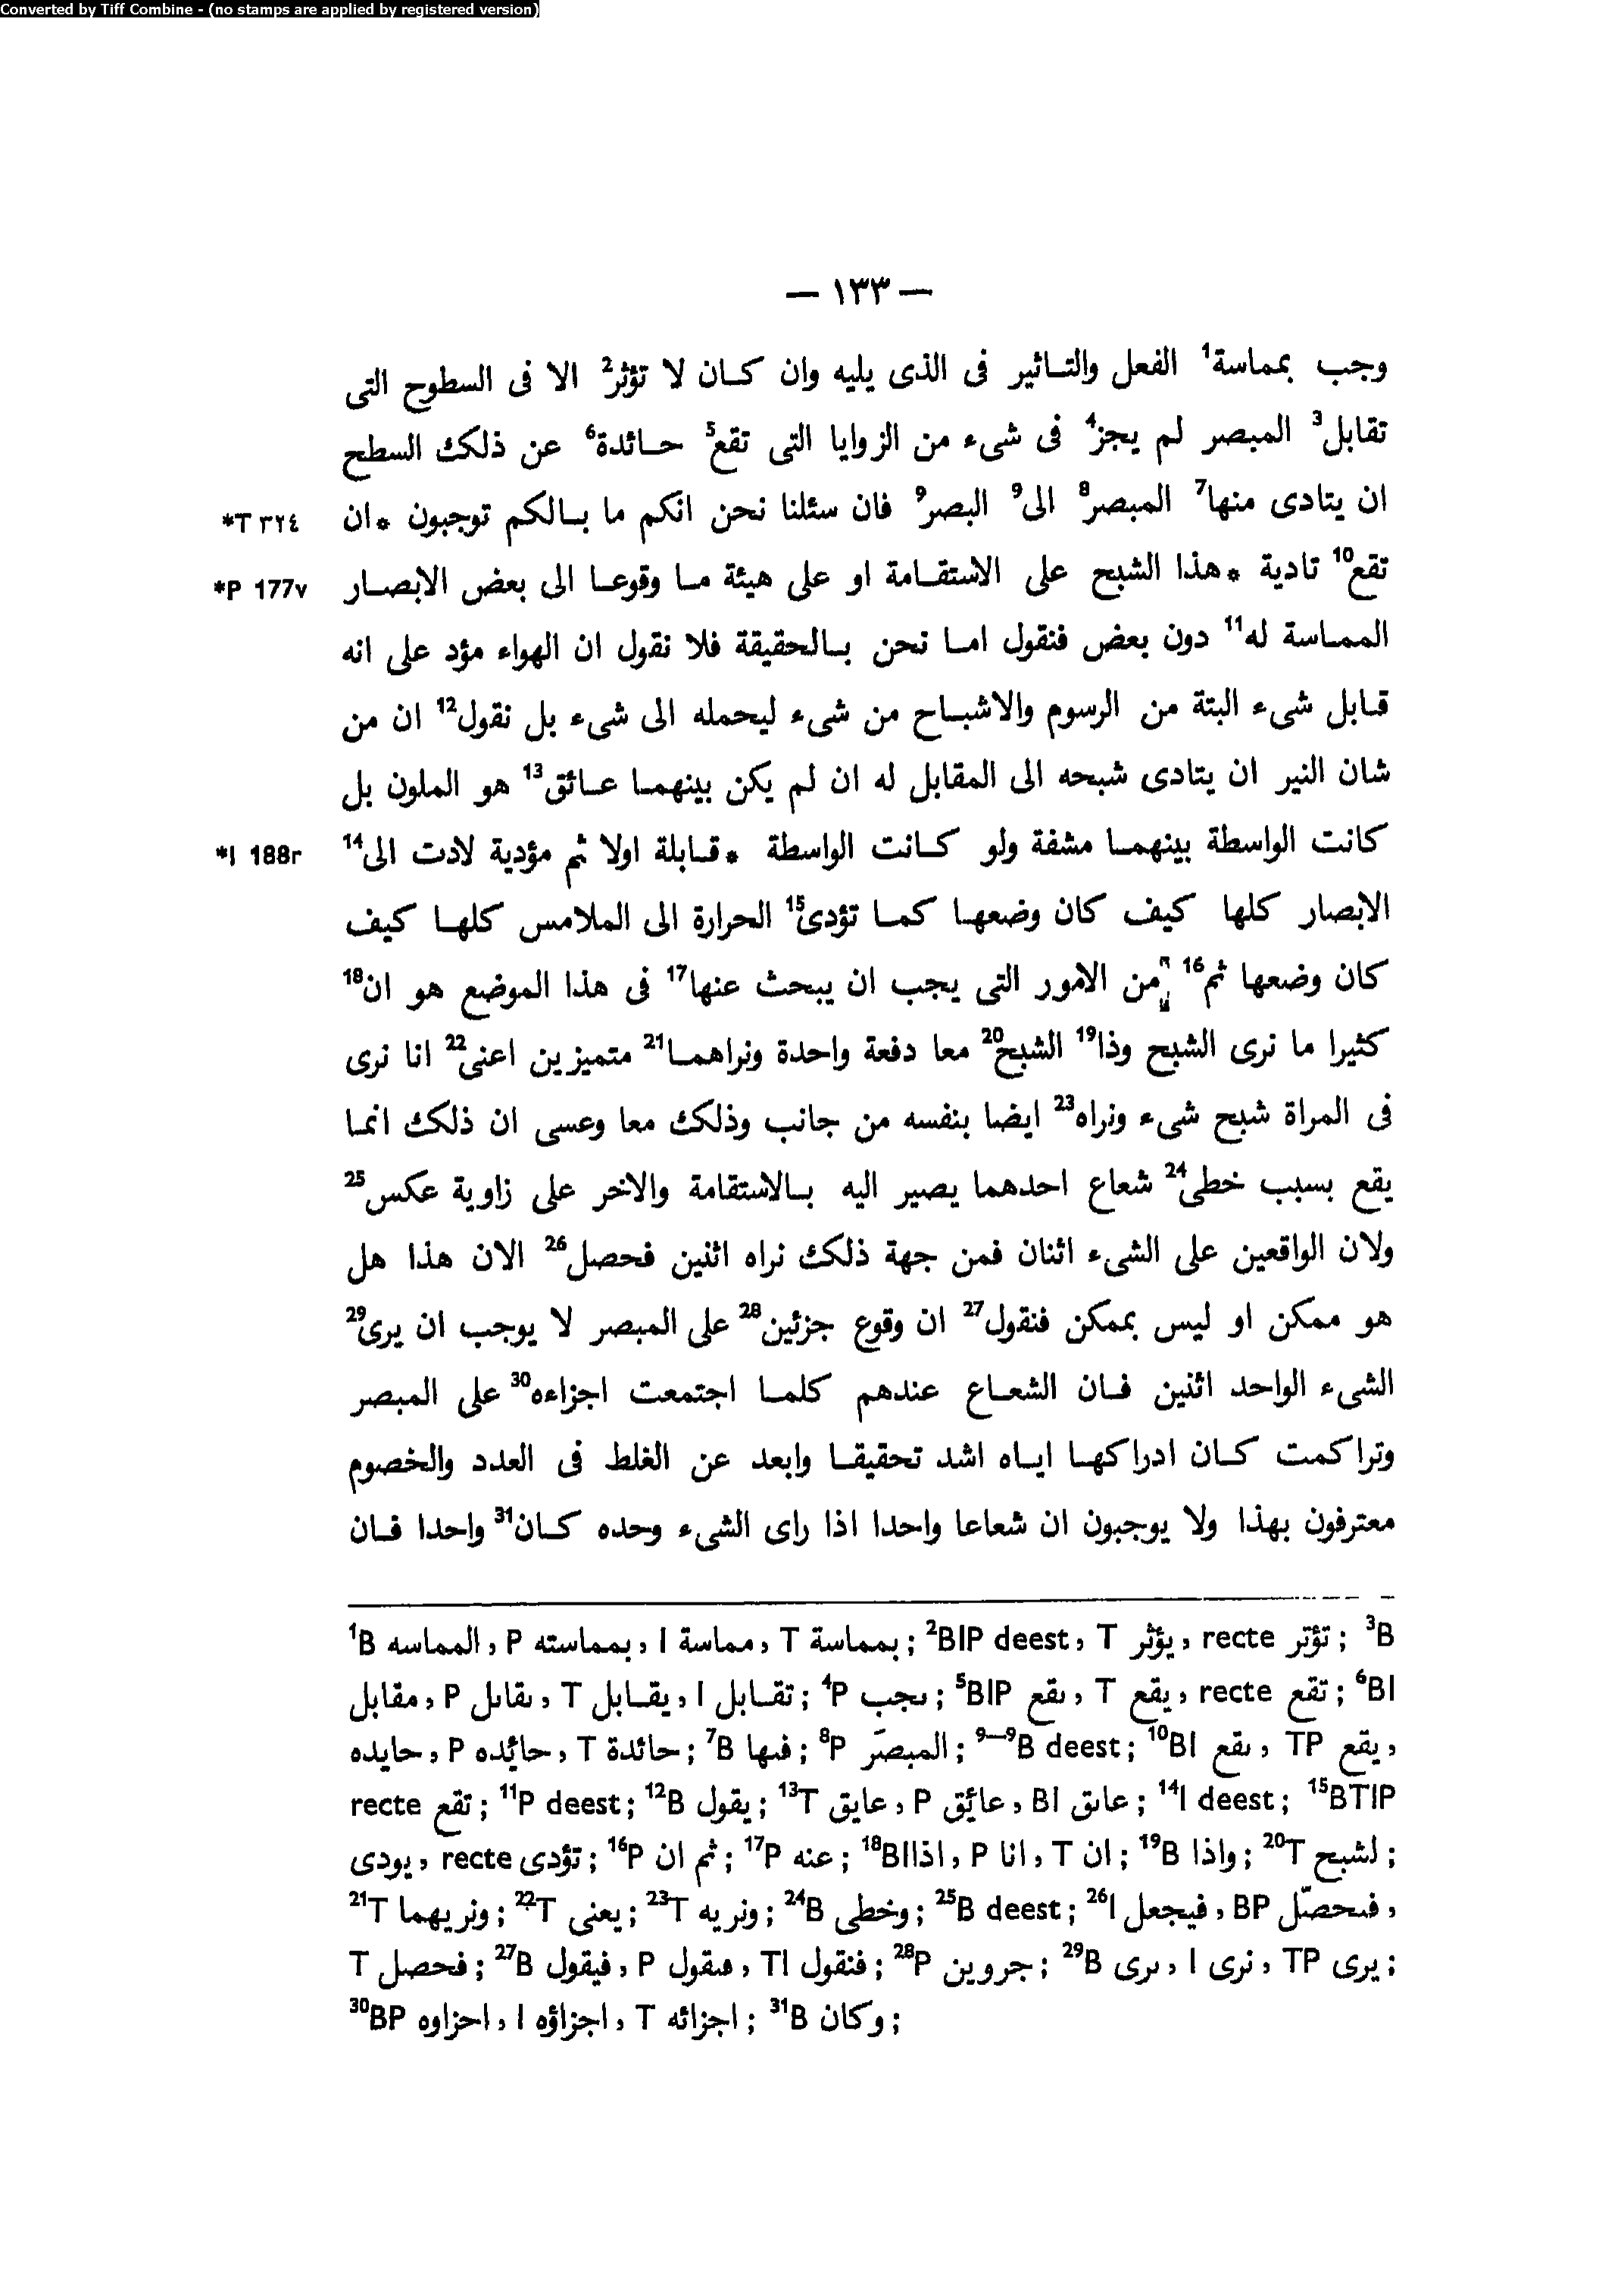 Converted by Tiff Combine - (no stamps are applied by registered version)
— ١٣٣ —
وجب بمماسة1 الفعل والتـاثير فى الذى يليه وان كـان لا تؤثر2 الا فى السطوح التى
تقابل3 المبصر لم يجز4 فى شىء من الزوايا التى تقع5 حـائدة6 عن ذلك السطح
ان يتادى منها7 المبصر8 الى9 البصر9 فان سئلنا نحن انكم ما بـالكم توجبون *ان *T ٣٢٤
تقع10 تادية *هذا الشبح على الاستقـامة او على هيئة مـا وقوعـا الى بعض الابصـار *P 177v
المماسة له11 دون بعض فنقول امـا نحن بـالحقيقة فلا نقول ان الهواء مؤد على انه
قـابل شىء البتة من الرسوم والاشبـاح من شىء ليحمله الى شىء بل نقول12 ان من
شان النير ان يتادى شبحه الى المقابل له ان لم يكن بينهمـا عـائق13 هو الملون بل
كانت الواسطة بينهمـا مشفة ولو كـانت الواسطة *قـابلة اولا ثم مؤدية لادت الى14 *I 188r
الابصار كلها كيف كان وضعهـا كمـا تؤدى15 الحرارة الى الملامس كلهـا كيف
كان وضعها ثم16 من الامور التى يجب ان يبحث عنها17 فى هذا الموضع هو ان18
كثيرا ما نرى الشبح وذا19 الشبح20 معا دفعة واحدة ونراهمـا21 متميزين اعنى22 انا نرى
فى المراة شبح شىء ونراه23 ايضا بنفسه من جانب وذلك معا وعسى ان ذلك انما
يقع بسبب خطى24 شعاع احدهما يصير اليه بـالاستقامة والاخر على زاوية عكس25
ولان الواقعين على الشىء اثنان فمن جهة ذلك نراه اثنين فحصل26 الان هذا هل
هو ممكن او ليس بممكن فنقول27 ان وقوع جزئين28 على المبصر لا يوجب ان يرى29
الشىء الواحد اثنين فـان الشعـاع عندهم كلمـا اجتمعت اجزاءه30 على المبصر
وتراكمت كـان ادراكهـا ايـاه اشد تحقيقـا وابعد عن الغلط فى العدد والخصوم
معترفون بهذا ولا يوجبون ان شعاعا واحدا اذا راى الشىء وحده كـان31 واحدا فـان
1B المماسه، P بمماسته، I مماسة، T بمماسة; 2BIP deest، T يؤثر، recte تؤثر; 3B
مقابل، P ىقاىل، T يقـابل، I تقـابل; 4P ىجب; 5BIP ىقع، T يقع، recte تقع; 6BI
حايده، P حائده، T حائدة; 7B فىها; 8P المبصَر; 9—9B deest; 10BI ىقع، TP يقع،
recte تقع; 11P deest; 12B يقول; 13T عايق، P عائق، BI عاىق; 14I deest; 15BTIP
يودى، recte تؤدى; 16P ثم ان; 17P عنه; 18BI اذا، P انا، T ان; 19B واذا; 20T لشبح;
21T ونريهما; 22T يعنى; 23T ونريه; 24B وخطى; 25B deest; 26I فيجعل، BP فىحصّل،
T فحصل; 27B فيقول، P فىقول، TI فنقول; 28P جروين; 29B ىرى، I نرى، TP يرى;
30BP احزاوه، I اجزاؤه، T اجزائه; 31B وكان;